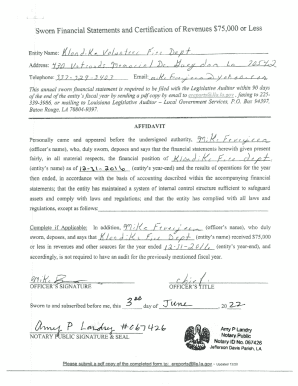 Sworn Financial Statements and Certification of Revenues $75,000 or Less
Entity Name: Klondike Volunteer Fire Dept
Address: 430 Veterans Memorial Dr La 70542
Telephone: 337-329-2903 Email:
This annual sworn financial statement is required to be filed with the Legislative Auditor within 90 days
of the entity's fiscal year by sending a pdf copy by email to ereports@lla.la.gov, faxing to 225-
339-3986, or mailing to Louisiana Legislative Auditor – Local Government Services, P.O. Box 94397,
Baton Rouge, LA 70804-9397.
AFFIDAVIT
Personally came and appeared before the undersigned authority, Mike
(officer's name), who, duly sworn, deposes and says that the financial statements herewith given present
fairly, in all material respects, the financial position of Klondike Fire Dept
(entity's name) as of 12-31-2016 (entity's year-end) and the results of operations for the year
then ended, in accordance with the basis of accounting described within the accompanying financial
statements; that the entity has maintained a system of internal control structure sufficient to safeguard
assets and comply with laws and regulations; and that the entity has complied with all laws and
regulations, except as follows:
Complete if Applicable: In addition, Mike (officer's name), who duly
sworn, deposes, and says that Klondike Fire Dept (entity's name) received $75,000
or less in revenues and other sources for the year ended 12-31-2016 (entity's year-end), and
accordingly, is not required to have an audit for the previously mentioned fiscal year.
Chief
OFFICER'S SIGNATURE OFFICER'S TITLE
Sworn to and subscribed before me, this 3rd day of June, 2022.
Amy P Landry #067426
NOTARY PUBLIC SIGNATURE & SEAL
Amy P Landry
Notary Public
Notary ID No. 067426
Jefferson Davis Parish, LA
Please submit a pdf copy of the completed form to: ereports@lla.la.gov